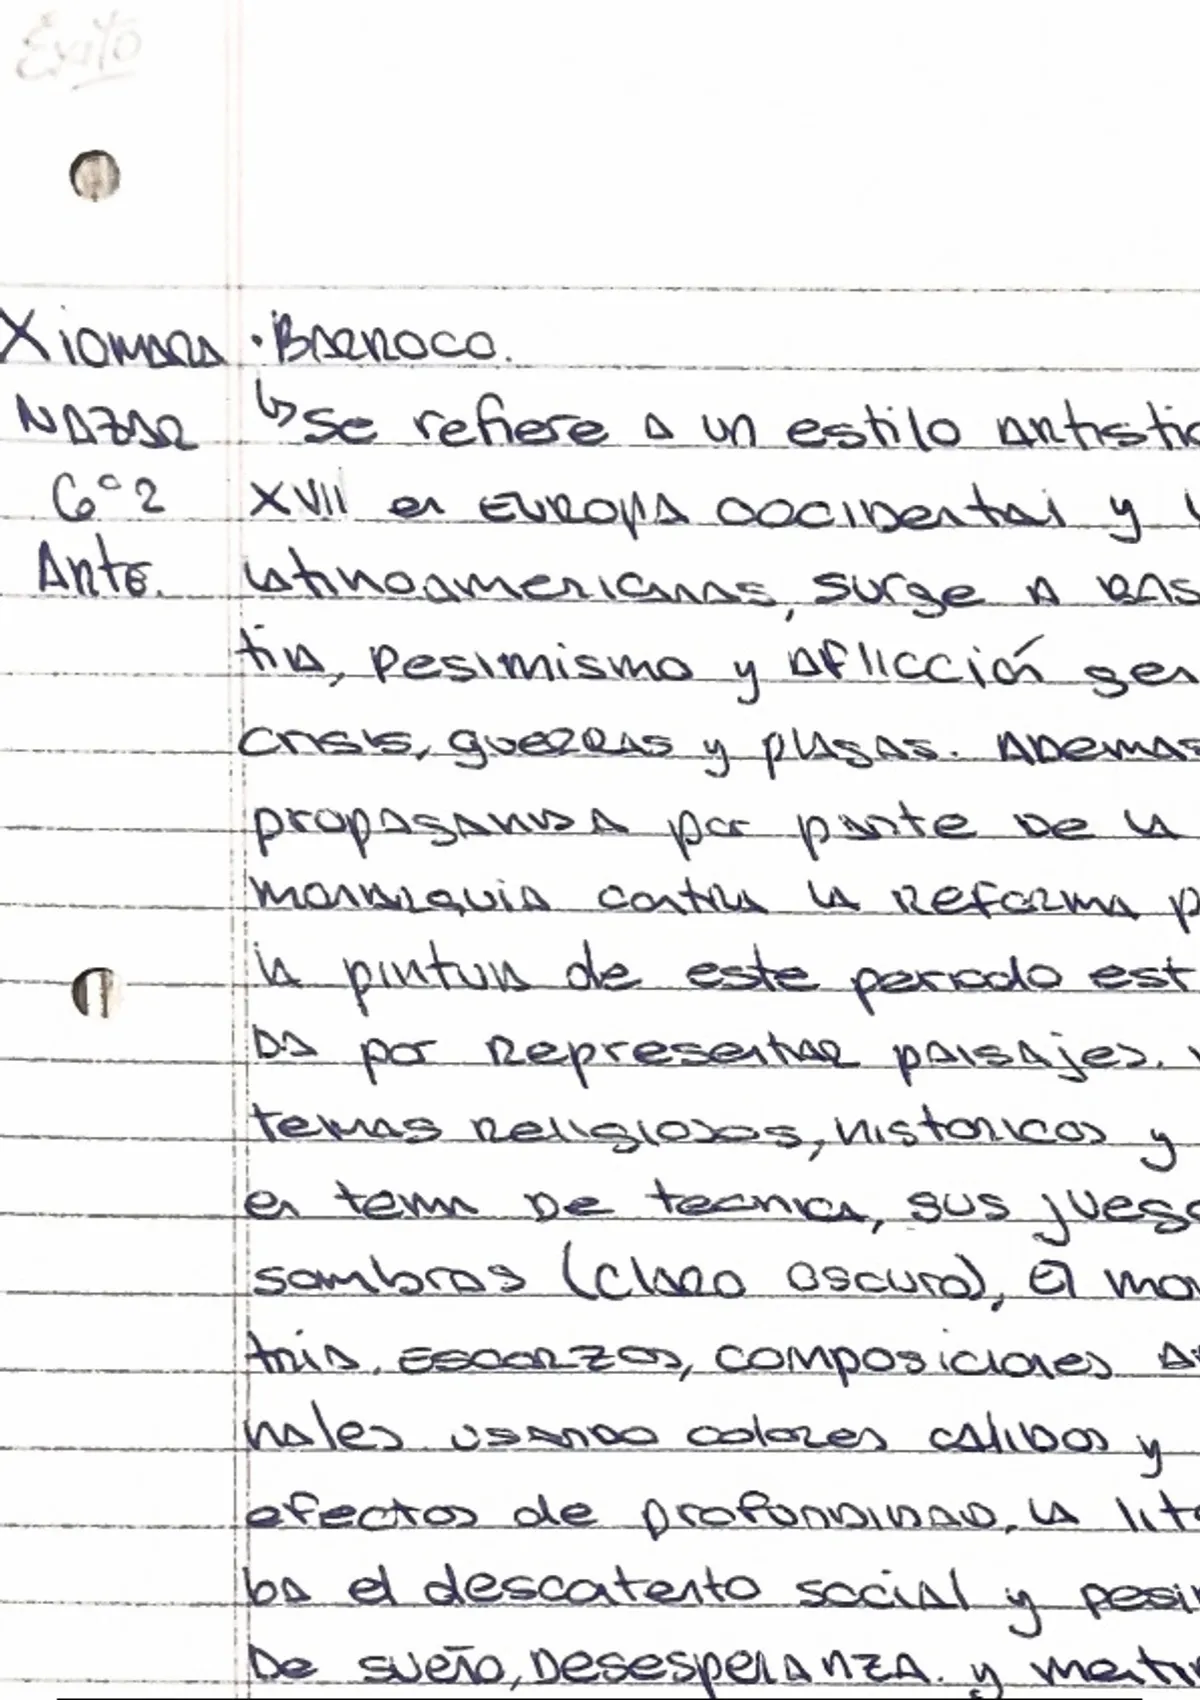 Éxito
Xiomara · Barroco.
Nazar ↳ se refiere a un estilo artistic
6°2 XVII en EUROPA OCCidental y l
Arte. latinoamericanas, surge a bas
tia, pesimismo y aflicción gen
crisis, guerras y plagas. Ademas
propaganda por parte de la
monarquia contra la Reforma p
la pintura de este periodo est
da por Representar paisajes.
temas Religiosos, historicos y
en tema De tecnica, sus juego
sombras (claro oscuro),
tria, Escorzos, composiciones
nales usando colores calidos y
efectos de profundidad, la lite
ba el descontento social y pesim
De sueño, Desesperanza. y